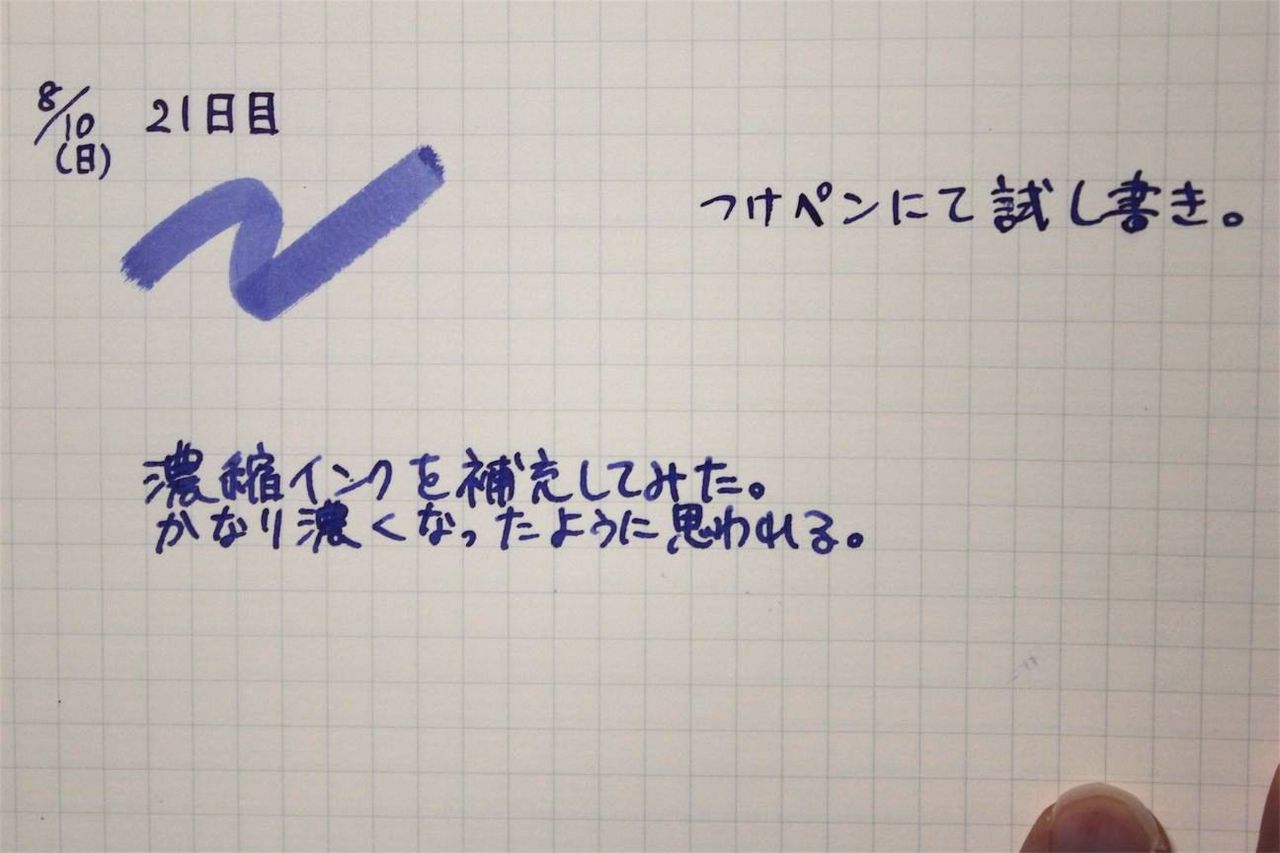 8/10 21日目
(日)
つけペンにて試し書き。
濃縮インクを補充してみた。
かなり濃くなったように思われる。